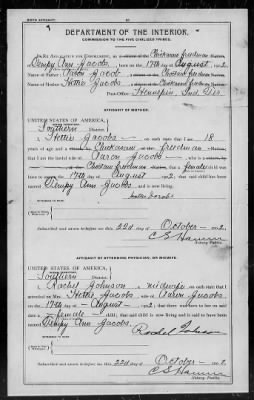 BIRTH AFFIDAVIT.
DEPARTMENT OF THE INTERIOR.
COMMISSION TO THE FIVE CIVILIZED TRIBES.
IN RE APPLICATION FOR ENROLLMENT, as a citizen of the Chickasaw freedman Nation,
Dempy Ann Jacobs, born on the 17th day of August, 1902
Name of Father: Aaron Jacobs a citizen of the Choctaw freedman Nation.
Name of Mother: Hettie Jacobs a citizen of the Nation.
Post-Office, Ind. Ter.
AFFIDAVIT OF MOTHER.
UNITED STATES OF AMERICA,
Southern District.
I, Hettie Jacobs, on oath state that I am 18
years of age and a Chickasaw freedman
that I am the lawful wife of Aaron Jacobs, who is a citizen, by
Choctaw freedman Nation, that a female child was
born to me on 17th day of August, 1902, that said child has been
named Dempy Ann Jacobs, and is now living.
Hettie Jacobs
Subscribed and sworn to before me this 22d day of October, 1902.
Notary Public.
AFFIDAVIT OF ATTENDING PHYSICIAN, OR MIDWIFE.
UNITED STATES OF AMERICA,
Southern District.
I, Rachel Johnson, a midwife, on oath state that I
attended on Mrs. Hettie Jacobs, wife of Aaron Jacobs
on the 17th day of August, 1902, that there was born to her on said
date a female child; that said child is now living and is said to have been
named Dempy Ann Jacobs
Rachel Johnson
Subscribed and sworn to before me this 22d day of October, 1902.
Notary Public.